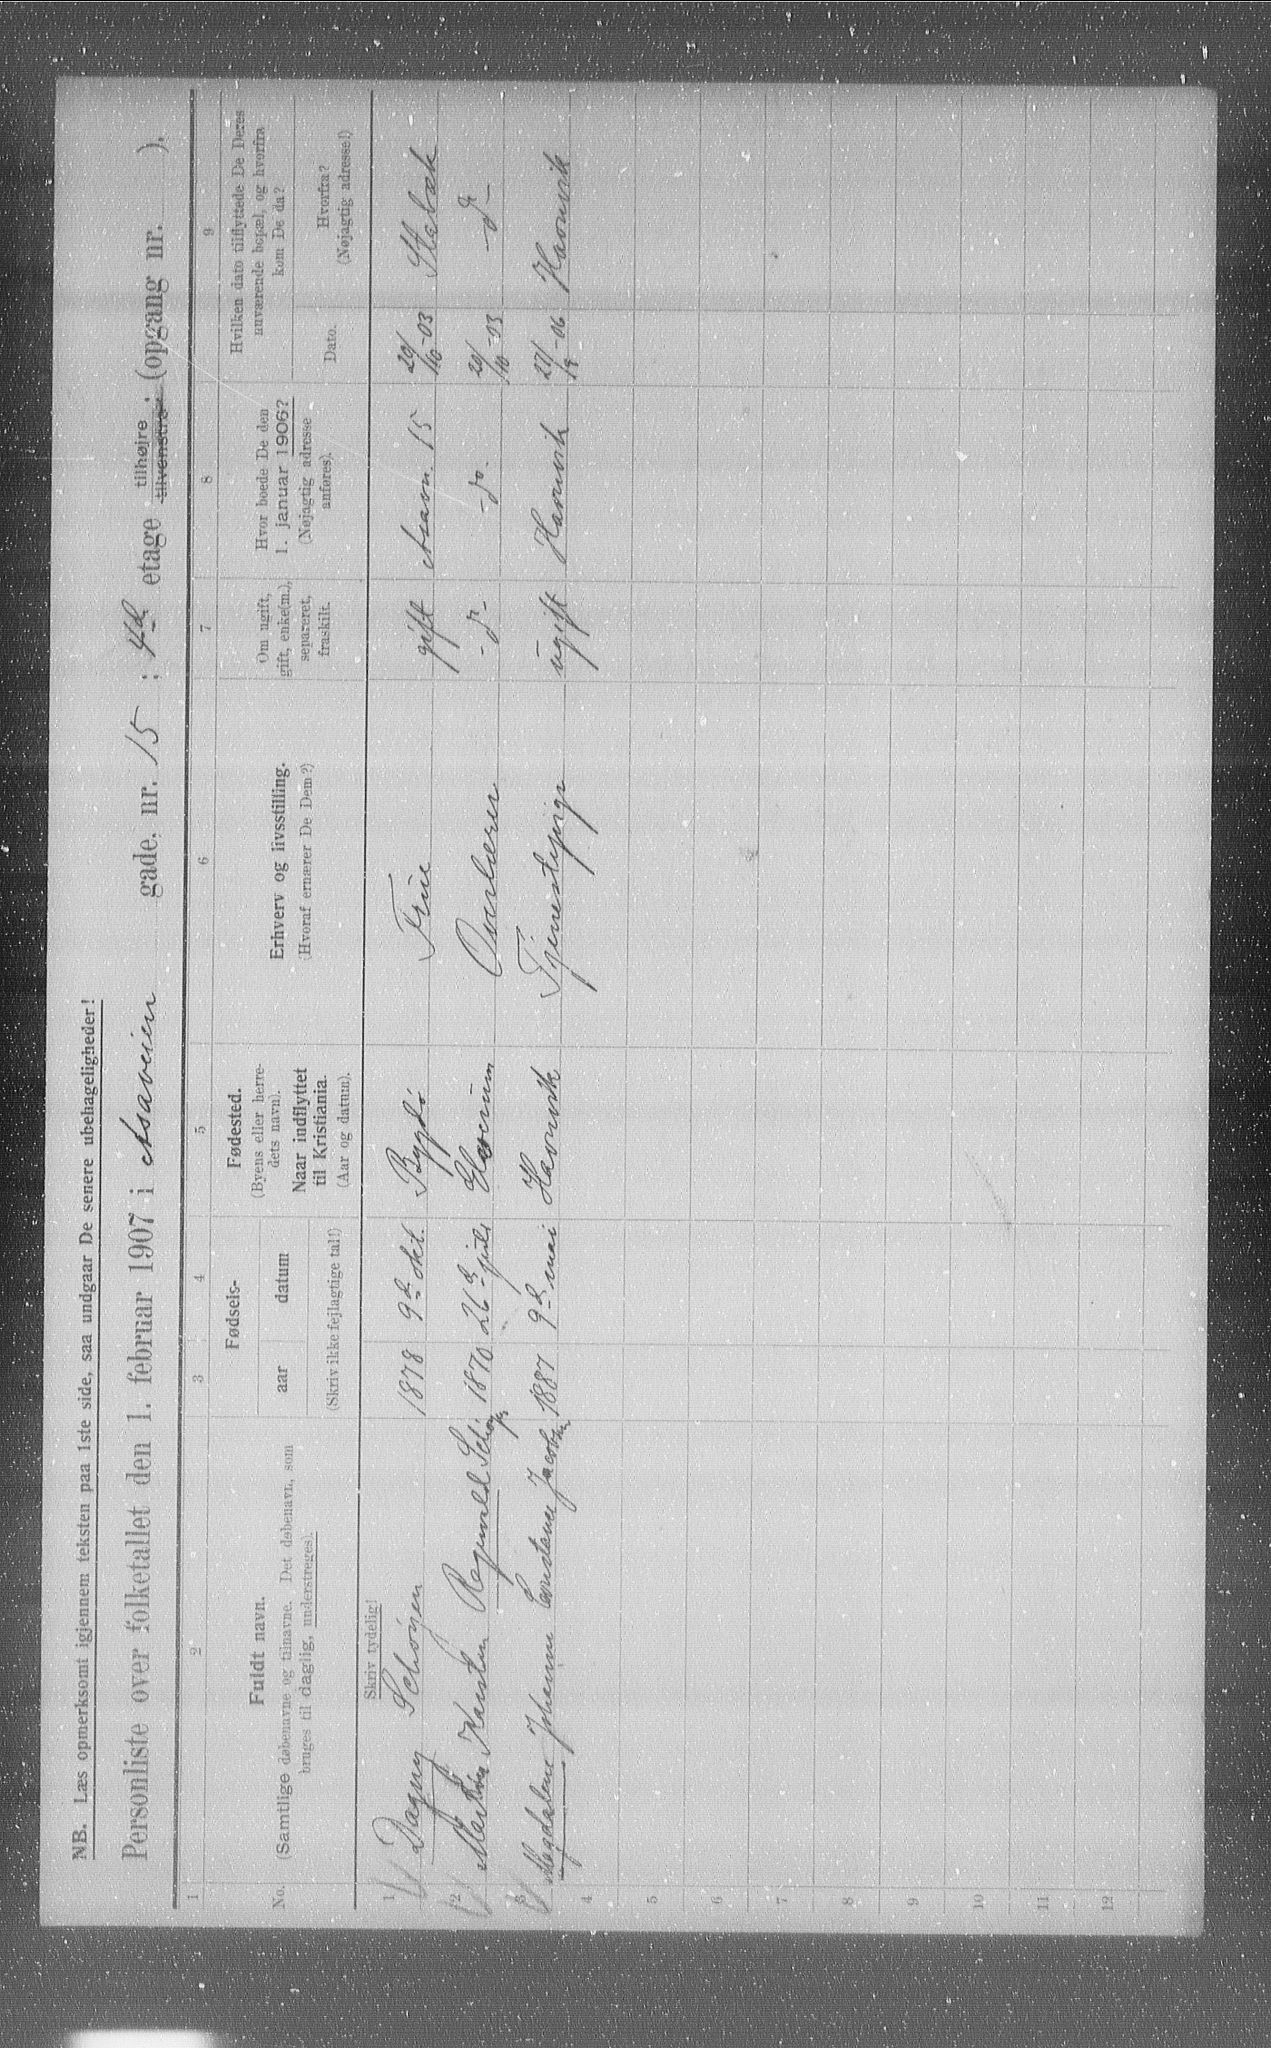 NB. Læs opmerksomt igjennem teksten paa 1ste side, saa undgaar De senere ubehageligheder!
Personliste over folketallet den 1. februar 1907 i Asaveien gade, nr. 15 ; 4d etage tilhøjre tilvenstre ; (opgang nr. ).
1 2 3 4 5 6 7 8 9
No.
Fuldt navn.
(Samtlige døbenavne og tilnavne. Det døbenavn, som
bruges til daglig, understreges).
Fødsels-
aar datum
(Skriv ikke fejlagtige tal!)
Fødested.
(Byens eller herre-
dets navn).
Naar indflyttet
til Kristiania.
(Aar og datum).
Erhverv og livsstilling.
(Hvoraf ernærer De Dem?)
Om ugift,
gift, enke(m.),
separeret,
fraskilt.
Hvor boede De den
1. januar 1906?
(Nøjagtig adresse
anføres).
Hvilken dato tilflyttede De Deres
nuværende bopæl, og hvorfra
kom De da?
Dato.
Hvorfra?
(Nøjagtig adresse!)
Skriv tydelig!
1 Dagny Schøyen 1878 9d okt. Bygdø Frue gift Asavn. 15 20/10-03 Stabæk
2 Karsten Ragnvald 1870 26d juli Elverum Overlærer -do- -do- 20/10-03 -do-
3 Magdalene Johanne Constance Jacobsen 1887 9d mai Havnvik Tjenestepige ugift Havnvik 27/9-06 Havnvik
4
5
6
7
8
9
10
11
12